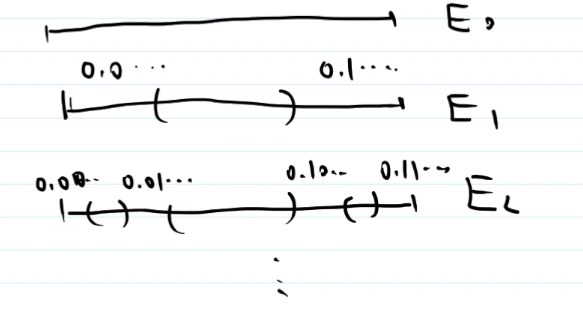 E₀
0.0... 0.1....
E₁
0.00.. 0.01... 0.10... 0.11...
E₂
⋮